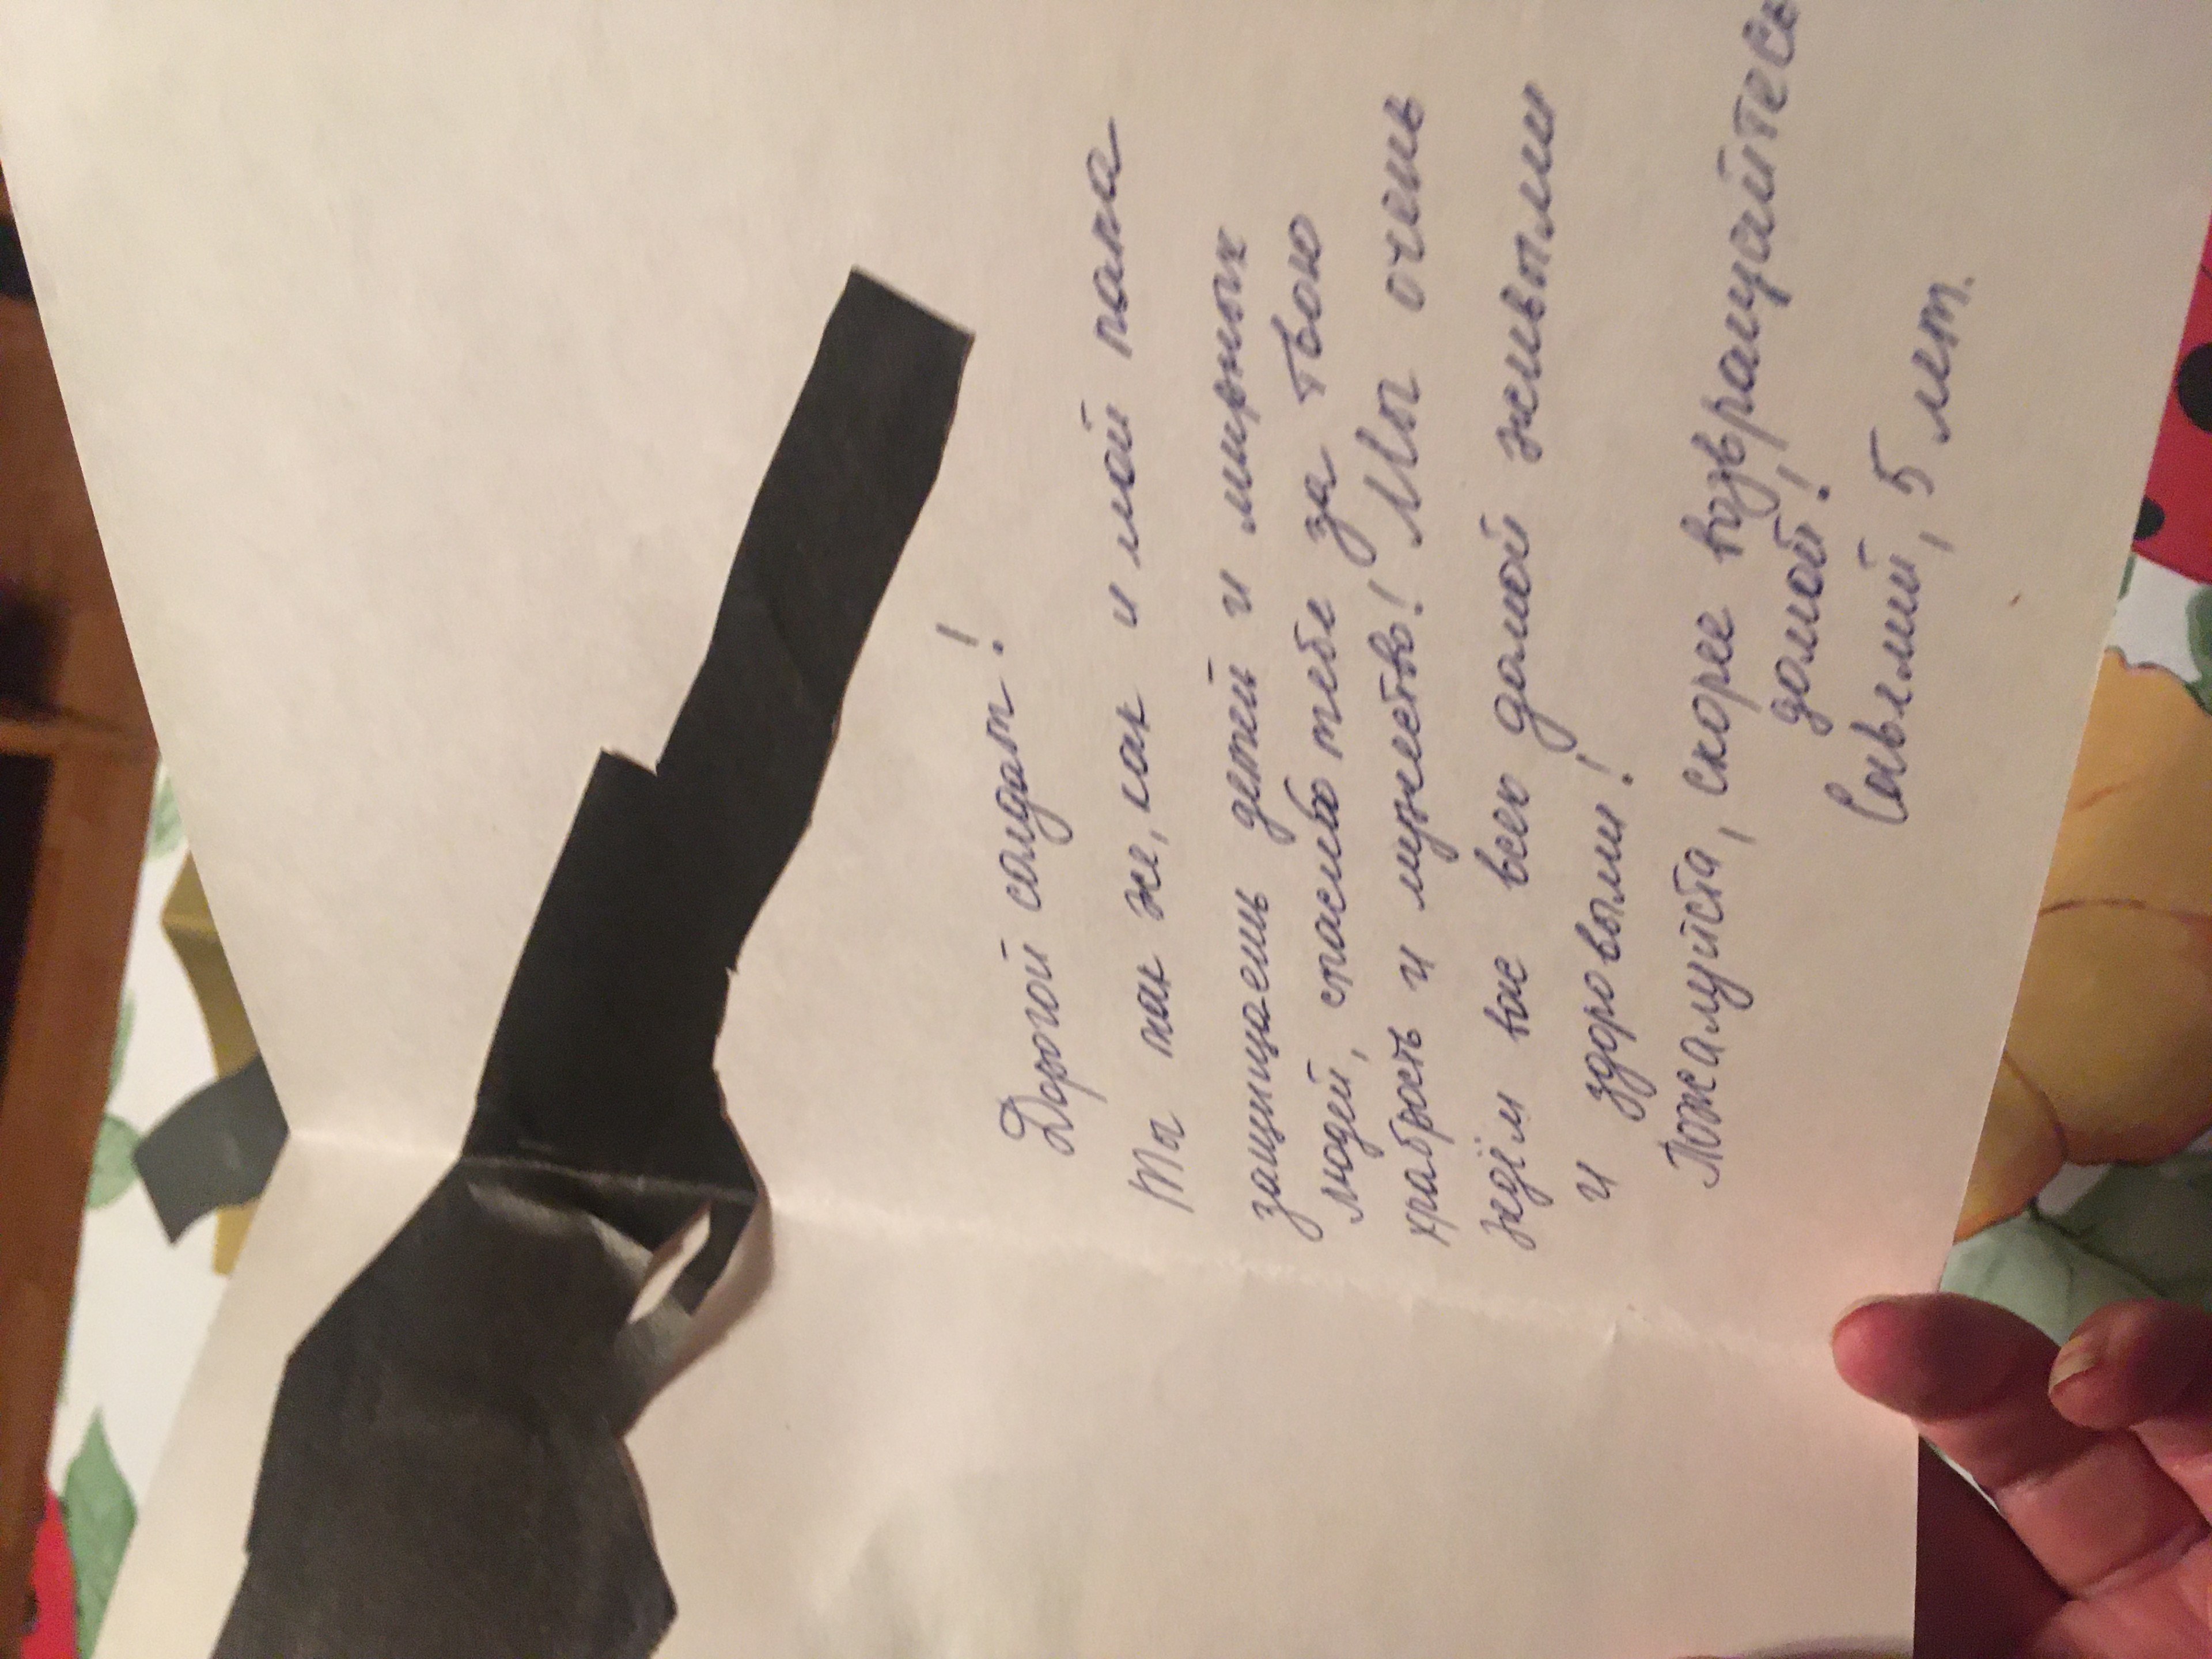 Дорогой солдат!
Ты так же, как и мой папа
защищаешь детей и мирных
людей, спасибо тебе за твою
храбрость и мужество! Мы очень
ждём вас всех домой живыми
и здоровыми!
Пожалуйста, скорее возвращайтесь
домой!
Савелий, 5 лет.